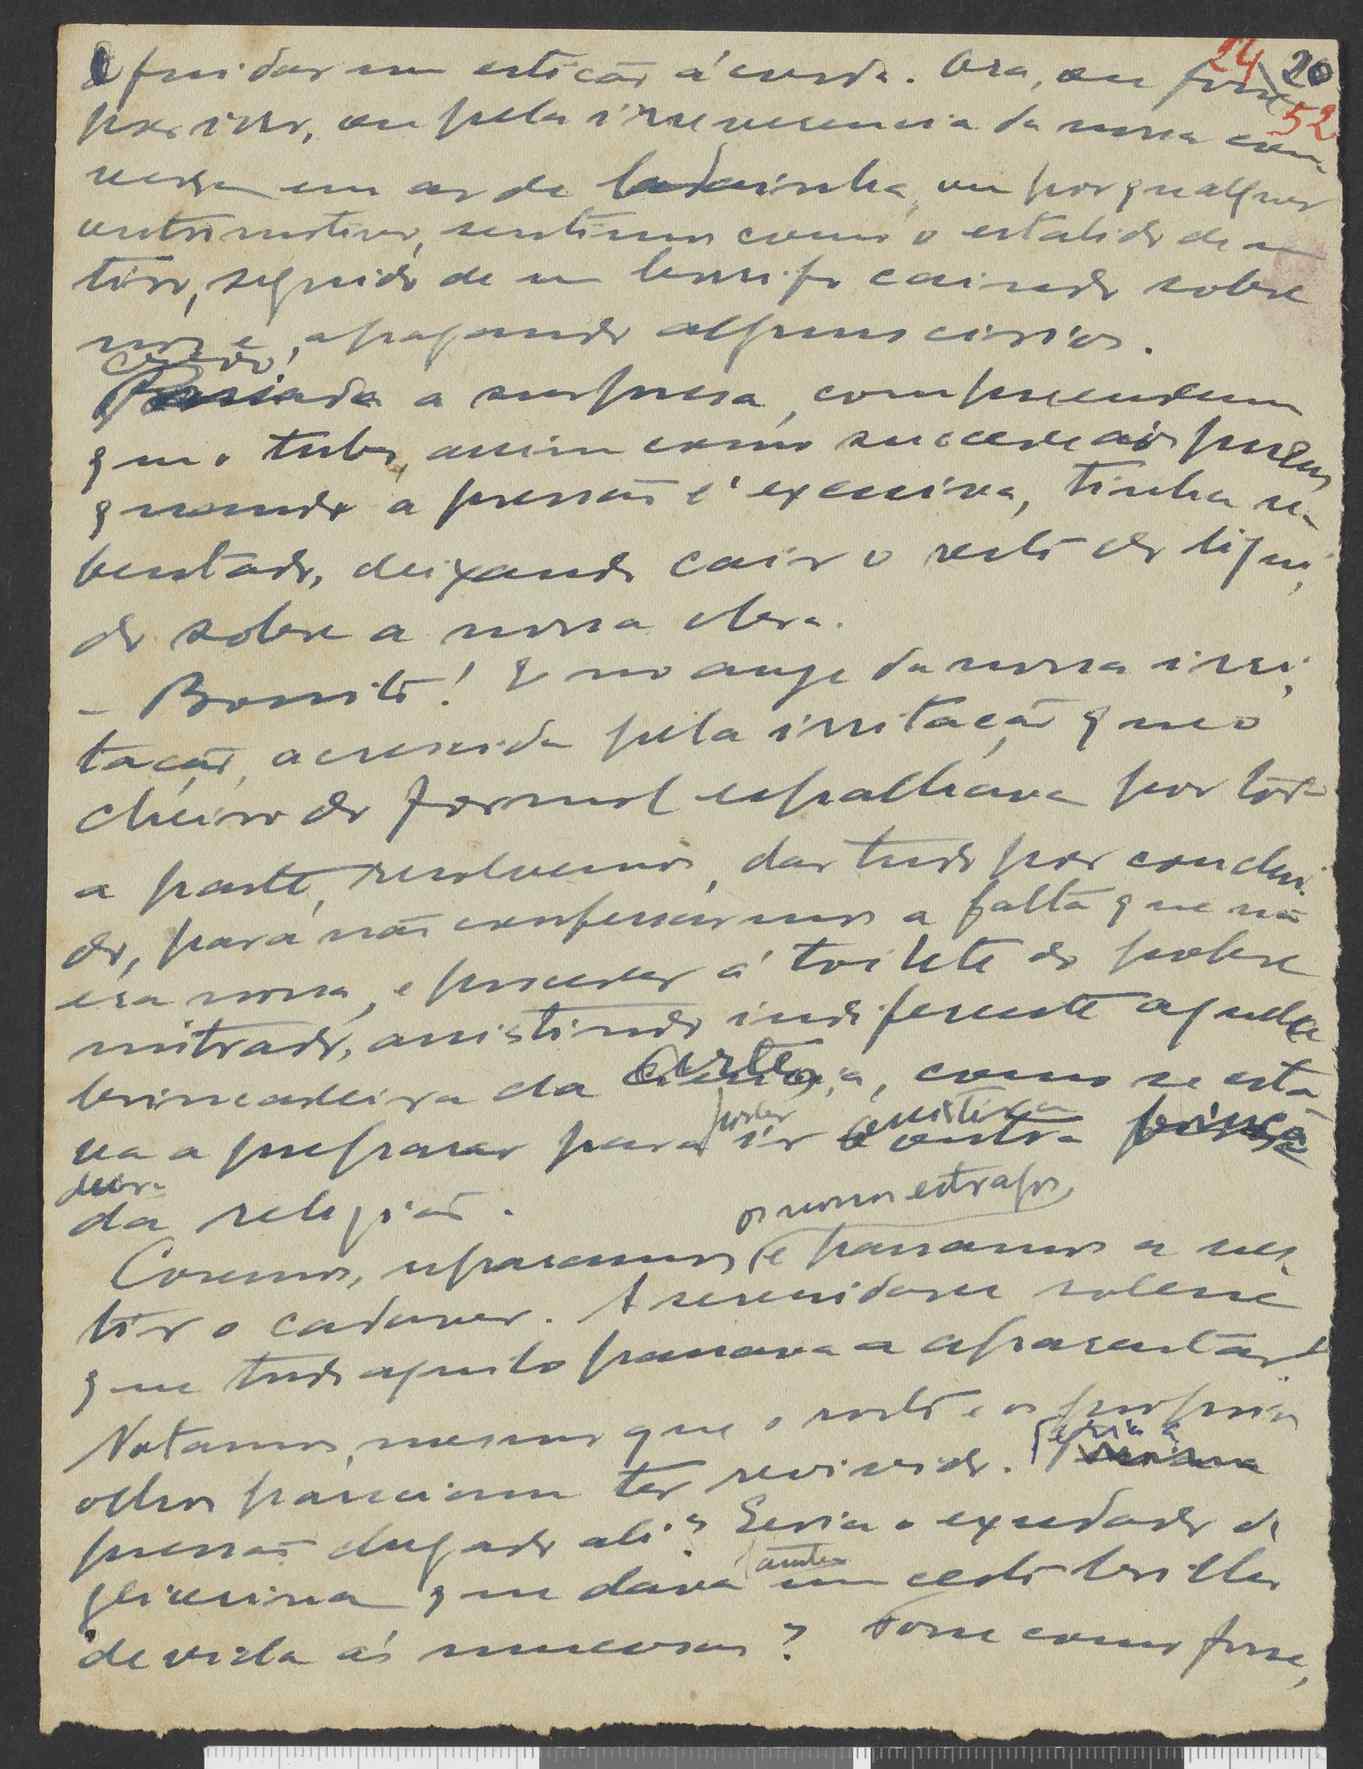 24 20
52
e fui dar um esticão á corda. Ora, ou fosse
por isso, ou pela irreverencia da nossa con
versa em ar de ladainha, ou por qualquer
outro motivo, sentimos como o estalido de um
tiro, seguido de um borrifo caindo sobre
nós e, apagando alguns cirios.
Passada a surpresa, compreendemos
que o tubo, assim como sucede aos pneus
quando a pressão é excessiva, tinha re
bentado, deixando cair o resto do liqui,
do sobre a nossa obra.
– Bonito! E no auge da nossa irri,
tação, acrescida pela irritação que o
cheiro do formol espalhava por toda
a parte, resolvemos, dar tudo por conclui
do, para não confessarmos a falta que não
era nossa, e proceder á toilete do pobre
mitrado, assistindo indiferente aquela
brincadeira da arte, como se esta
va a preparar para poder ir assistir a outra brinca
deira
da religião.
os nossos estragos,
Cosemos, reparamos e passamos a ves,
tir o cadaver. A serenidade solene
que tudo aquilo passava a aparentar!
Notamos, mesmo que o rosto e os proprios
olhos pareciam ter revivido. Teria a
pressão chegado ali? Seria o exsudado de
glicerina que dava antes um certo brilho
de vida ás mucosas? Fosse como fosse,